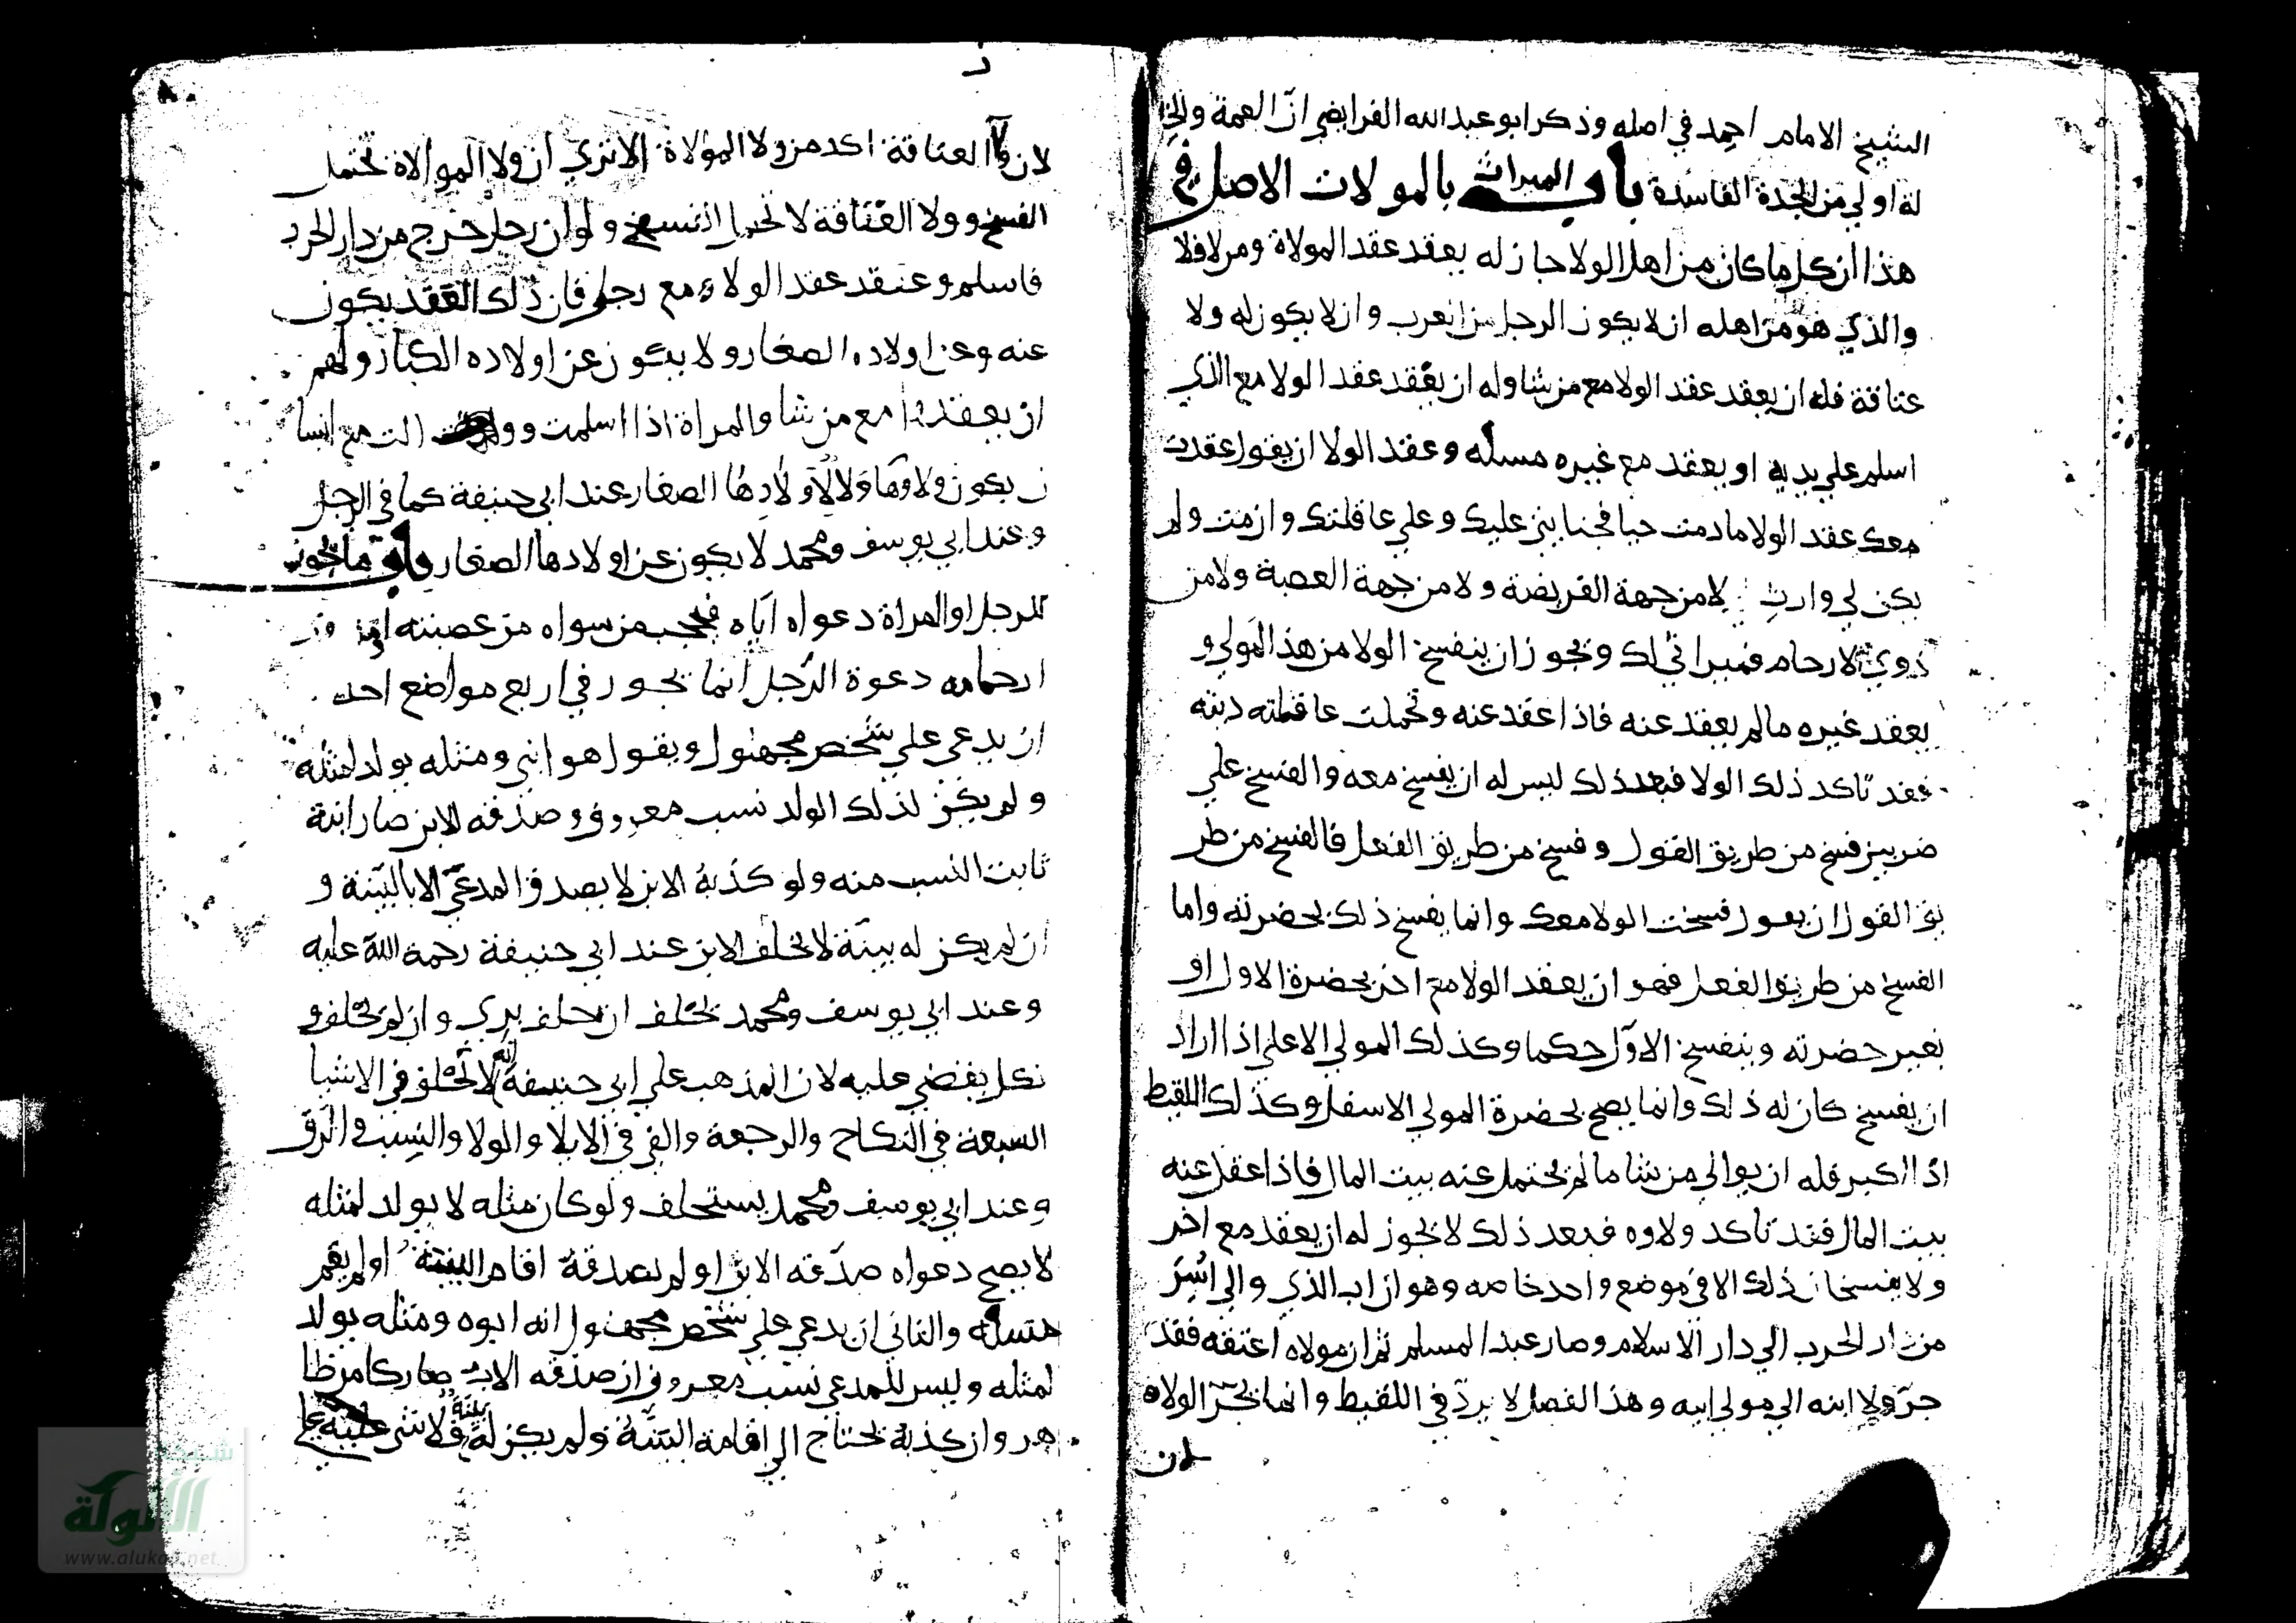 الشيخ الامام احمد في اصله وذكر ابو عبد الله الفرايضي ان العمة والخا
لة اولي من الجدة الفاسدة باب الميراث بالمولات الاصل في
هذا ان كل ما كان من اهل الولا جاز له يعقد عقد المولاة ومن لا فلا
والذي هو من اهله ان لا يكون الرجل من العرب وان لا يكون له ولا
عتاقة فله ان يعقد عقد الولا مع من شا وله ان يعقد عقد الولا مع الذي
اسلم علي يديه او يعقد مع غيره مسئله وعقد الولا ان يقول عقدت
معك عقد الولا ما دمت حيا فجنايتي عليك وعلي عاقلتك وان مت ولم
يكن لي وارث لا من جهة الفريضة ولا من جهة العصبة ولا من
ذوي الارحام فميراثي لك ويجوز ان ينفسخ الولا من هذا المولي و
يعقد غيره ما لم يعقد عنه فاذا عقد عنه وتحملت عاقلته ديته
فقد تاكد ذلك الولا فبعد ذلك ليس له ان يفسخ معه والفسخ علي
ضربين فسخ من طريق القول وفسخ من طريق الفعل فالفسخ من طر
يق القول ان يقول فسخت الولا معك وانما يفسخ ذلك بحضرته واما
الفسخ من طريق الفعل فهو ان يعقد الولا مع اخر بحضرة الاول او
بغير حضرته وينفسخ الاول حكما وكذلك المولي الاعلي اذا اراد
ان يفسخ كان له ذلك وانما يصح بحضرة المولي الاسفل وكذلك اللقيط
اذا كبر فله ان يوالي من شا ما لم يحتمل عنه بيت المال فاذا عقل عنه
بيت المال فقد تاكد ولاوه فبعد ذلك لا يجوز له ان يعقد مع اخر
ولا يفسخان ذلك الا في موضع واحد خاصه وهو ان اب الذي والي اسر
من دار الحرب الي دار الاسلام وصار عبدا لمسلم ثم ان مولاه اعتقه فقد
جر ولا ابنه الي مولي ابيه وهذا الفصل لا يرد في اللقيط وانما يجر الولاه
لان
لان ولا العتاقة اكد من ولا المولاة الا تري ان ولا الموالاة تحتمل
الفسخ وولا العتاقة لا تحتمل الفسخ ولو ان رجل خرج من دار الحرب
فاسلم وعقد عقد الولاء مع رجل فان ذلك العقد يكون
عنه وعن اولاده الصغار ولا يكون عن اولاده الكبار ولهم
ان يعقدوا مع من شا والمراة اذا اسلمت ووالت مع انسا
ن يكون ولاوها ولا لاولادها الصغار عند ابي حنيفة كما في الرجل
وعند ابي يوسف ومحمد لا يكون عن اولادها الصغار باب ما يجوز
للرجل او المراة دعواه اياه فيحجب من سواه من عصبته او ذوي
ارحامه دعوة الرجل انما يجوز في اربع مواضع احد
ان يدعي علي شخص مجهول ويقول هو ابني ومثله يولد لمثله
ولم يكن لذلك الولد نسب معروف وصدقه الابن صار ابنه
ثابت النسب منه ولو كذبه الابن لا يصدق المدعي الا بالبينة و
ان لم يكن له بينة لا يحلف الابن عند ابي حنيفة رحمة الله عليه
وعند ابي يوسف ومحمد يحلف ان حلف بري وان لم يحلف و
نكل يقضي عليه لان المذهب علي ابي حنيفة انه لا يحلف في الاشيا
السبعة في النكاح والرجعة والفي في الايلا والولا والنسب والرق
وعند ابي يوسف ومحمد يستحلف ولو كان مثله لا يولد لمثله
لا يصح دعواه صدقه الابن او لم يصدقه اقام البينة او لم يقم
مسئله والثاني ان يدعي علي شخص مجهول انه ابوه ومثله يولد
لمثله وليس للمدعي نسب معروف ان صدقه الاب صار كما مر ظا
هر وان كذبه يحتاج الي اقامة البينة ولم يكن له بينة فلا شي